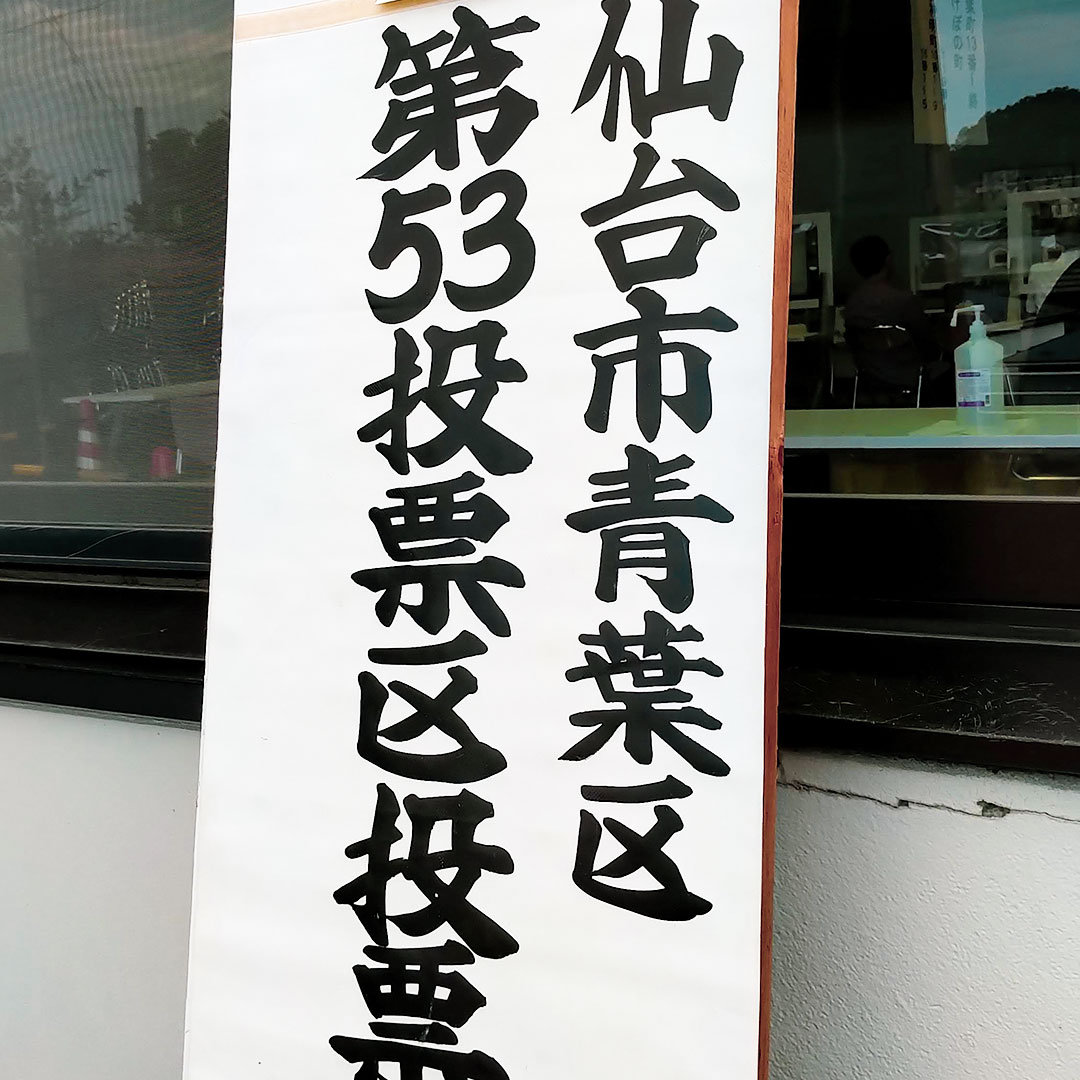 仙台市青葉区
第53投票区投票